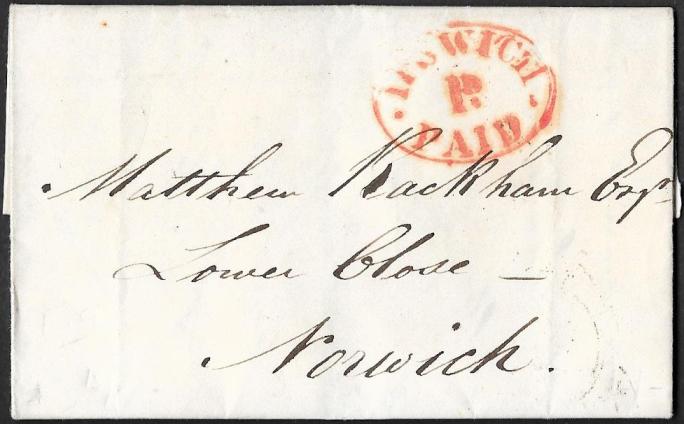 IPSWICH
P.
PAID
Matthew Rackham Esqr
Lower Close —
Norwich.